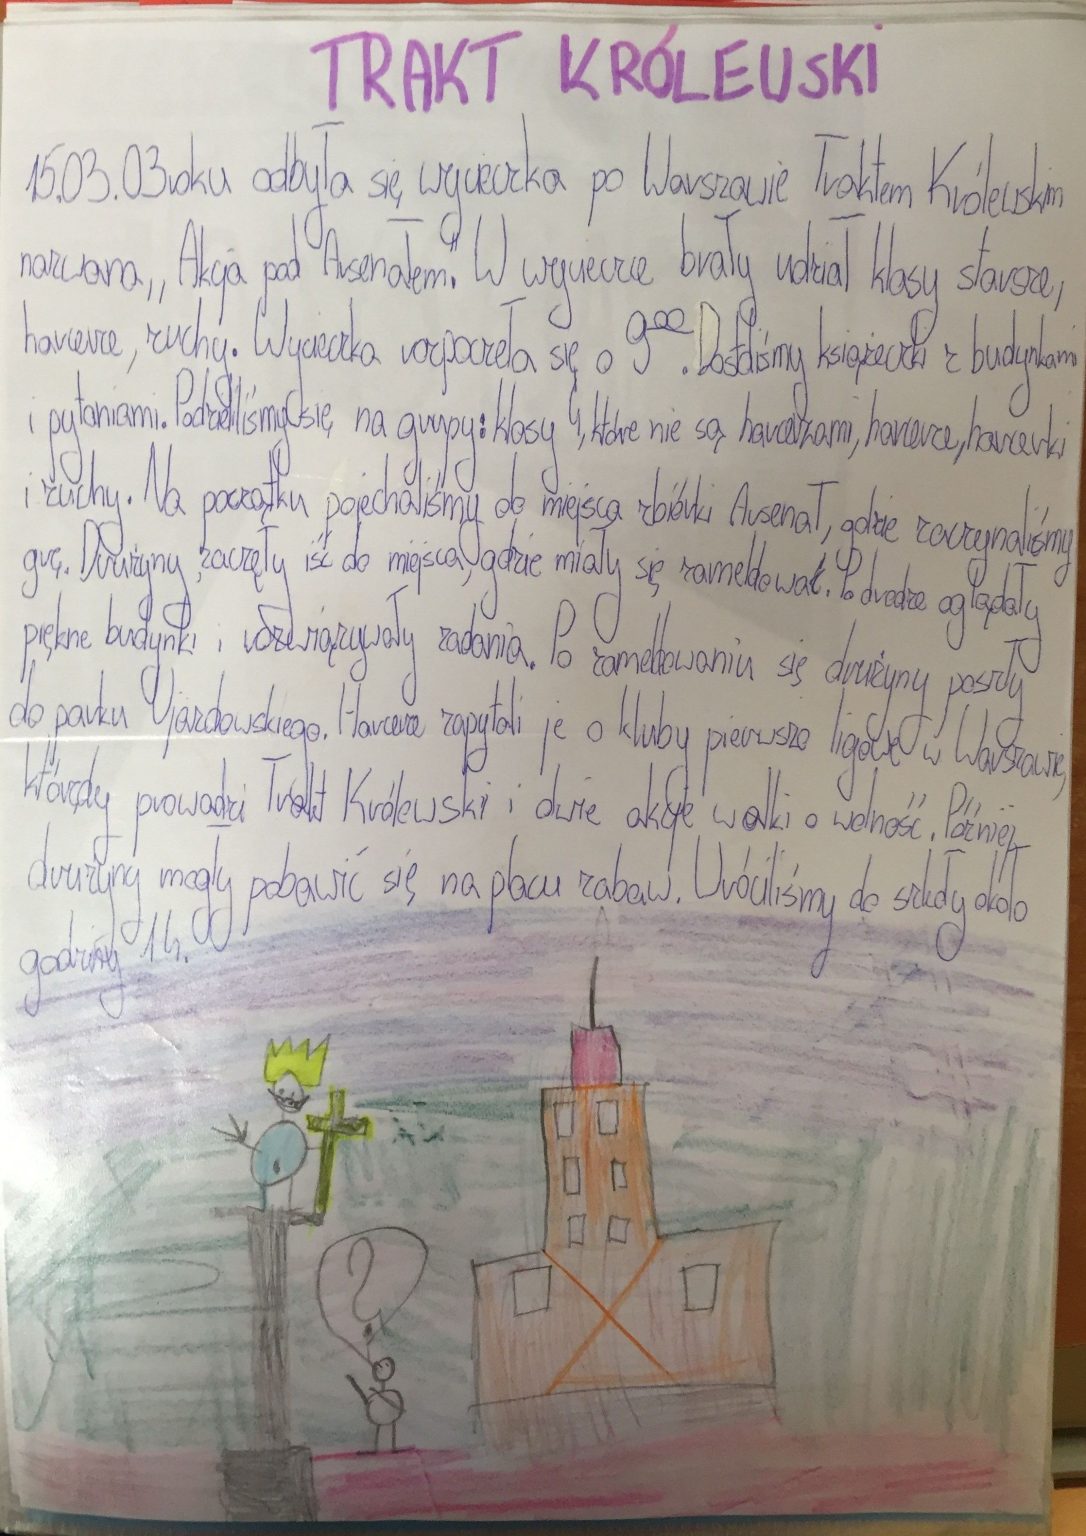 TRAKT KRÓLEUSKI
15.03.03roku odbyła się wycieczka po Warszawie Traktem Królewskim
nazwana,, Akcja pod Arsenałem." W wycieczce brały udział klasy starsze,
harcerze, zuchy. Wycieczka rozpoczęła się o 9⁰⁰. Dostaliśmy książeczki z budynkami
i pytaniami. Podzieliliśmy się na grupy: klasy 4, które nie są harcerzami, harcerze, harcerki
i zuchy. Na początku pojechaliśmy do miejsca zbiórki Arsenał, gdzie zaczynaliśmy
grę. Drużyny zaczęły iść do miejsca, gdzie miały się zameldować. Po drodze oglądały
piękne budynki i rozwiązywały zadania. Po zameldowaniu się drużyny poszły
do parku Ujazdowskiego. Harcerze zapytali je o kluby pierwszo ligowe w Warszawie,
którędy prowadzi Trakt Królewski i dwie akcje walki o wolność. Później
drużyny mogły pobawić się na placu zabaw. Wróciliśmy do szkoły około
godziny 14.
?